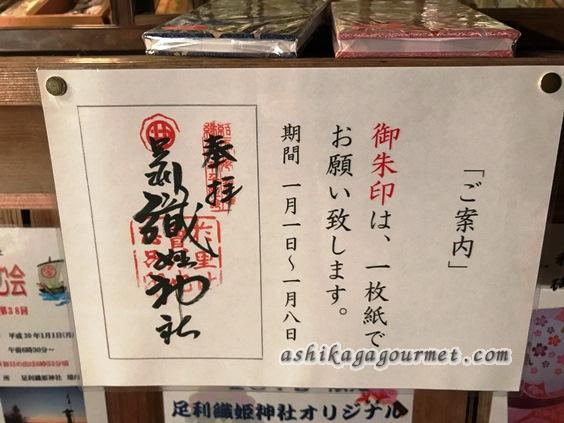 「ご案内」
御朱印は、一枚紙で
お願い致します。
期間 一月一日～一月八日
奉拝
足利織姫神社
ashikagagourmet.com
会
第38回
平成30年1月1日(月)
午前6時30分～
所 足利織姫神社 境内
足利織姫神社オリジナル